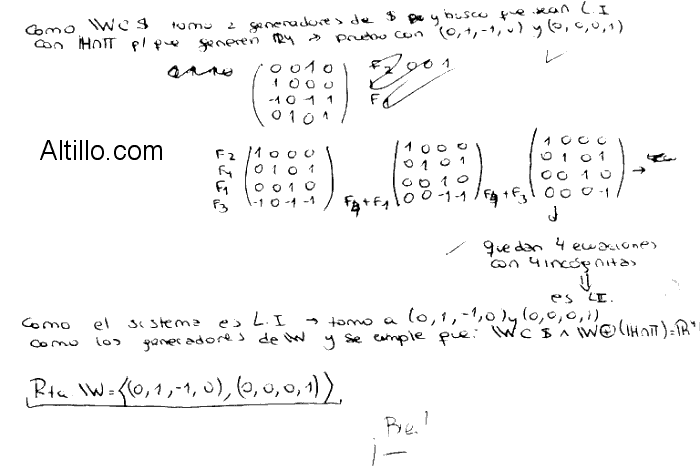 Como W ⊂ S tomo 2 generadores de S y busco que sean L.I
con H∩Π p/ que generen R4 → pruebo con (0,1,-1,0) y (0,0,0,1)
0 0 1 0
1 0 0 0
-1 0 1 1
0 1 0 1
F2 0 0 1
Altillo.com
F2 1 0 0 0
F4 0 1 0 1
F1 0 0 1 0
F3 -1 0 -1 -1
F4+F1
1 0 0 0
0 1 0 1
0 0 1 0
0 0 -1 -1
F4+F3
1 0 0 0
0 1 0 1
0 0 1 0
0 0 0 -1
→
quedan 4 ecuaciones
con 4 incógnitas
⇓
es LI.
Como el sistema es L.I → tomo a (0,1,-1,0) y (0,0,0,1)
como los generadores de W y se cumple que: W ⊂ S ∧ W⊕(H∩Π)=R4
Rta W=⟨(0,1,-1,0),(0,0,0,1)⟩